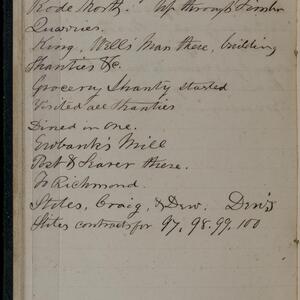 Rode North. Up through Timber
Quarries.
King, Well's Man there, building
Shanties &c.
Grocery Shanty started
Visited all Shanties
Dined in one.
Ewbank's Mill
Post & Seaver there.
To Richmond.
Stiles, Craig, & Dew. Dew's
Stiles contracts for 97, 98, 99, 100